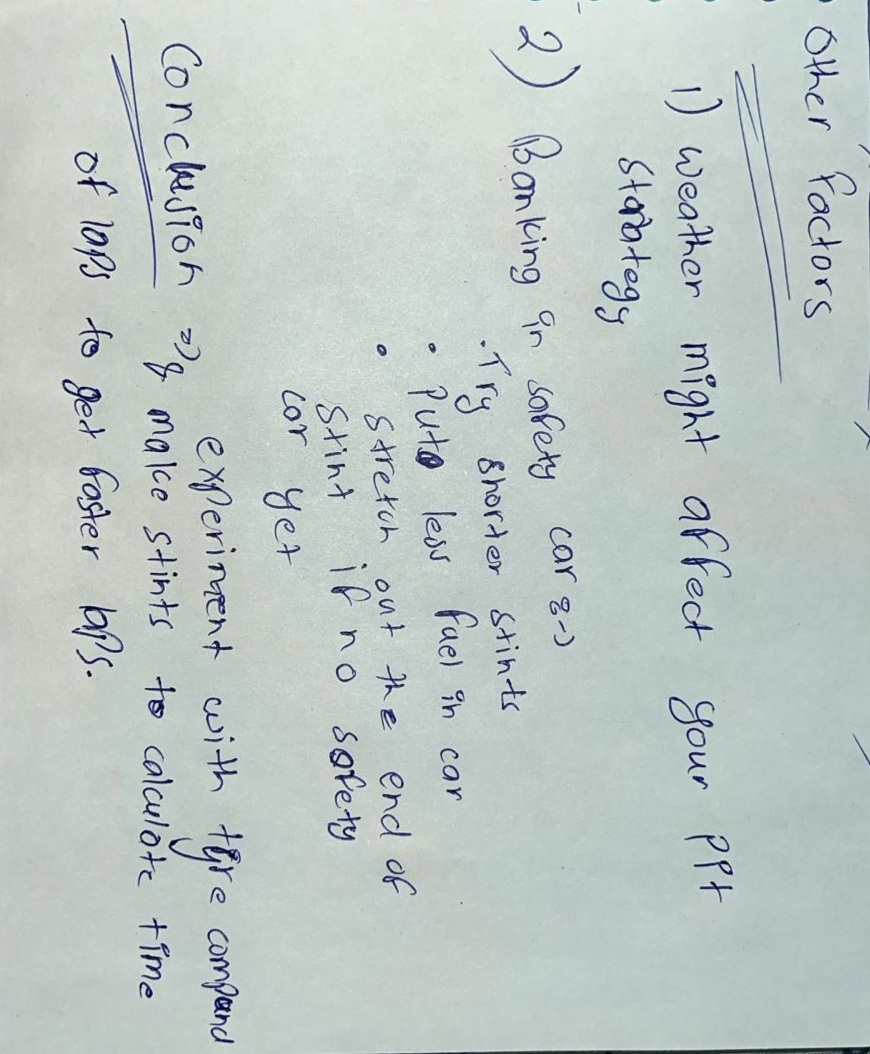 Other Factors
1) Weather might affect your PPt
starategy
2) Banking in safety car :->
• Try shorter stints
• Put less fuel in car
• stretch out the end of
stint if no safety
car yet
experiment with tyre compound
Conclusion => & make stints to calculate time
of laps to get faster laps.